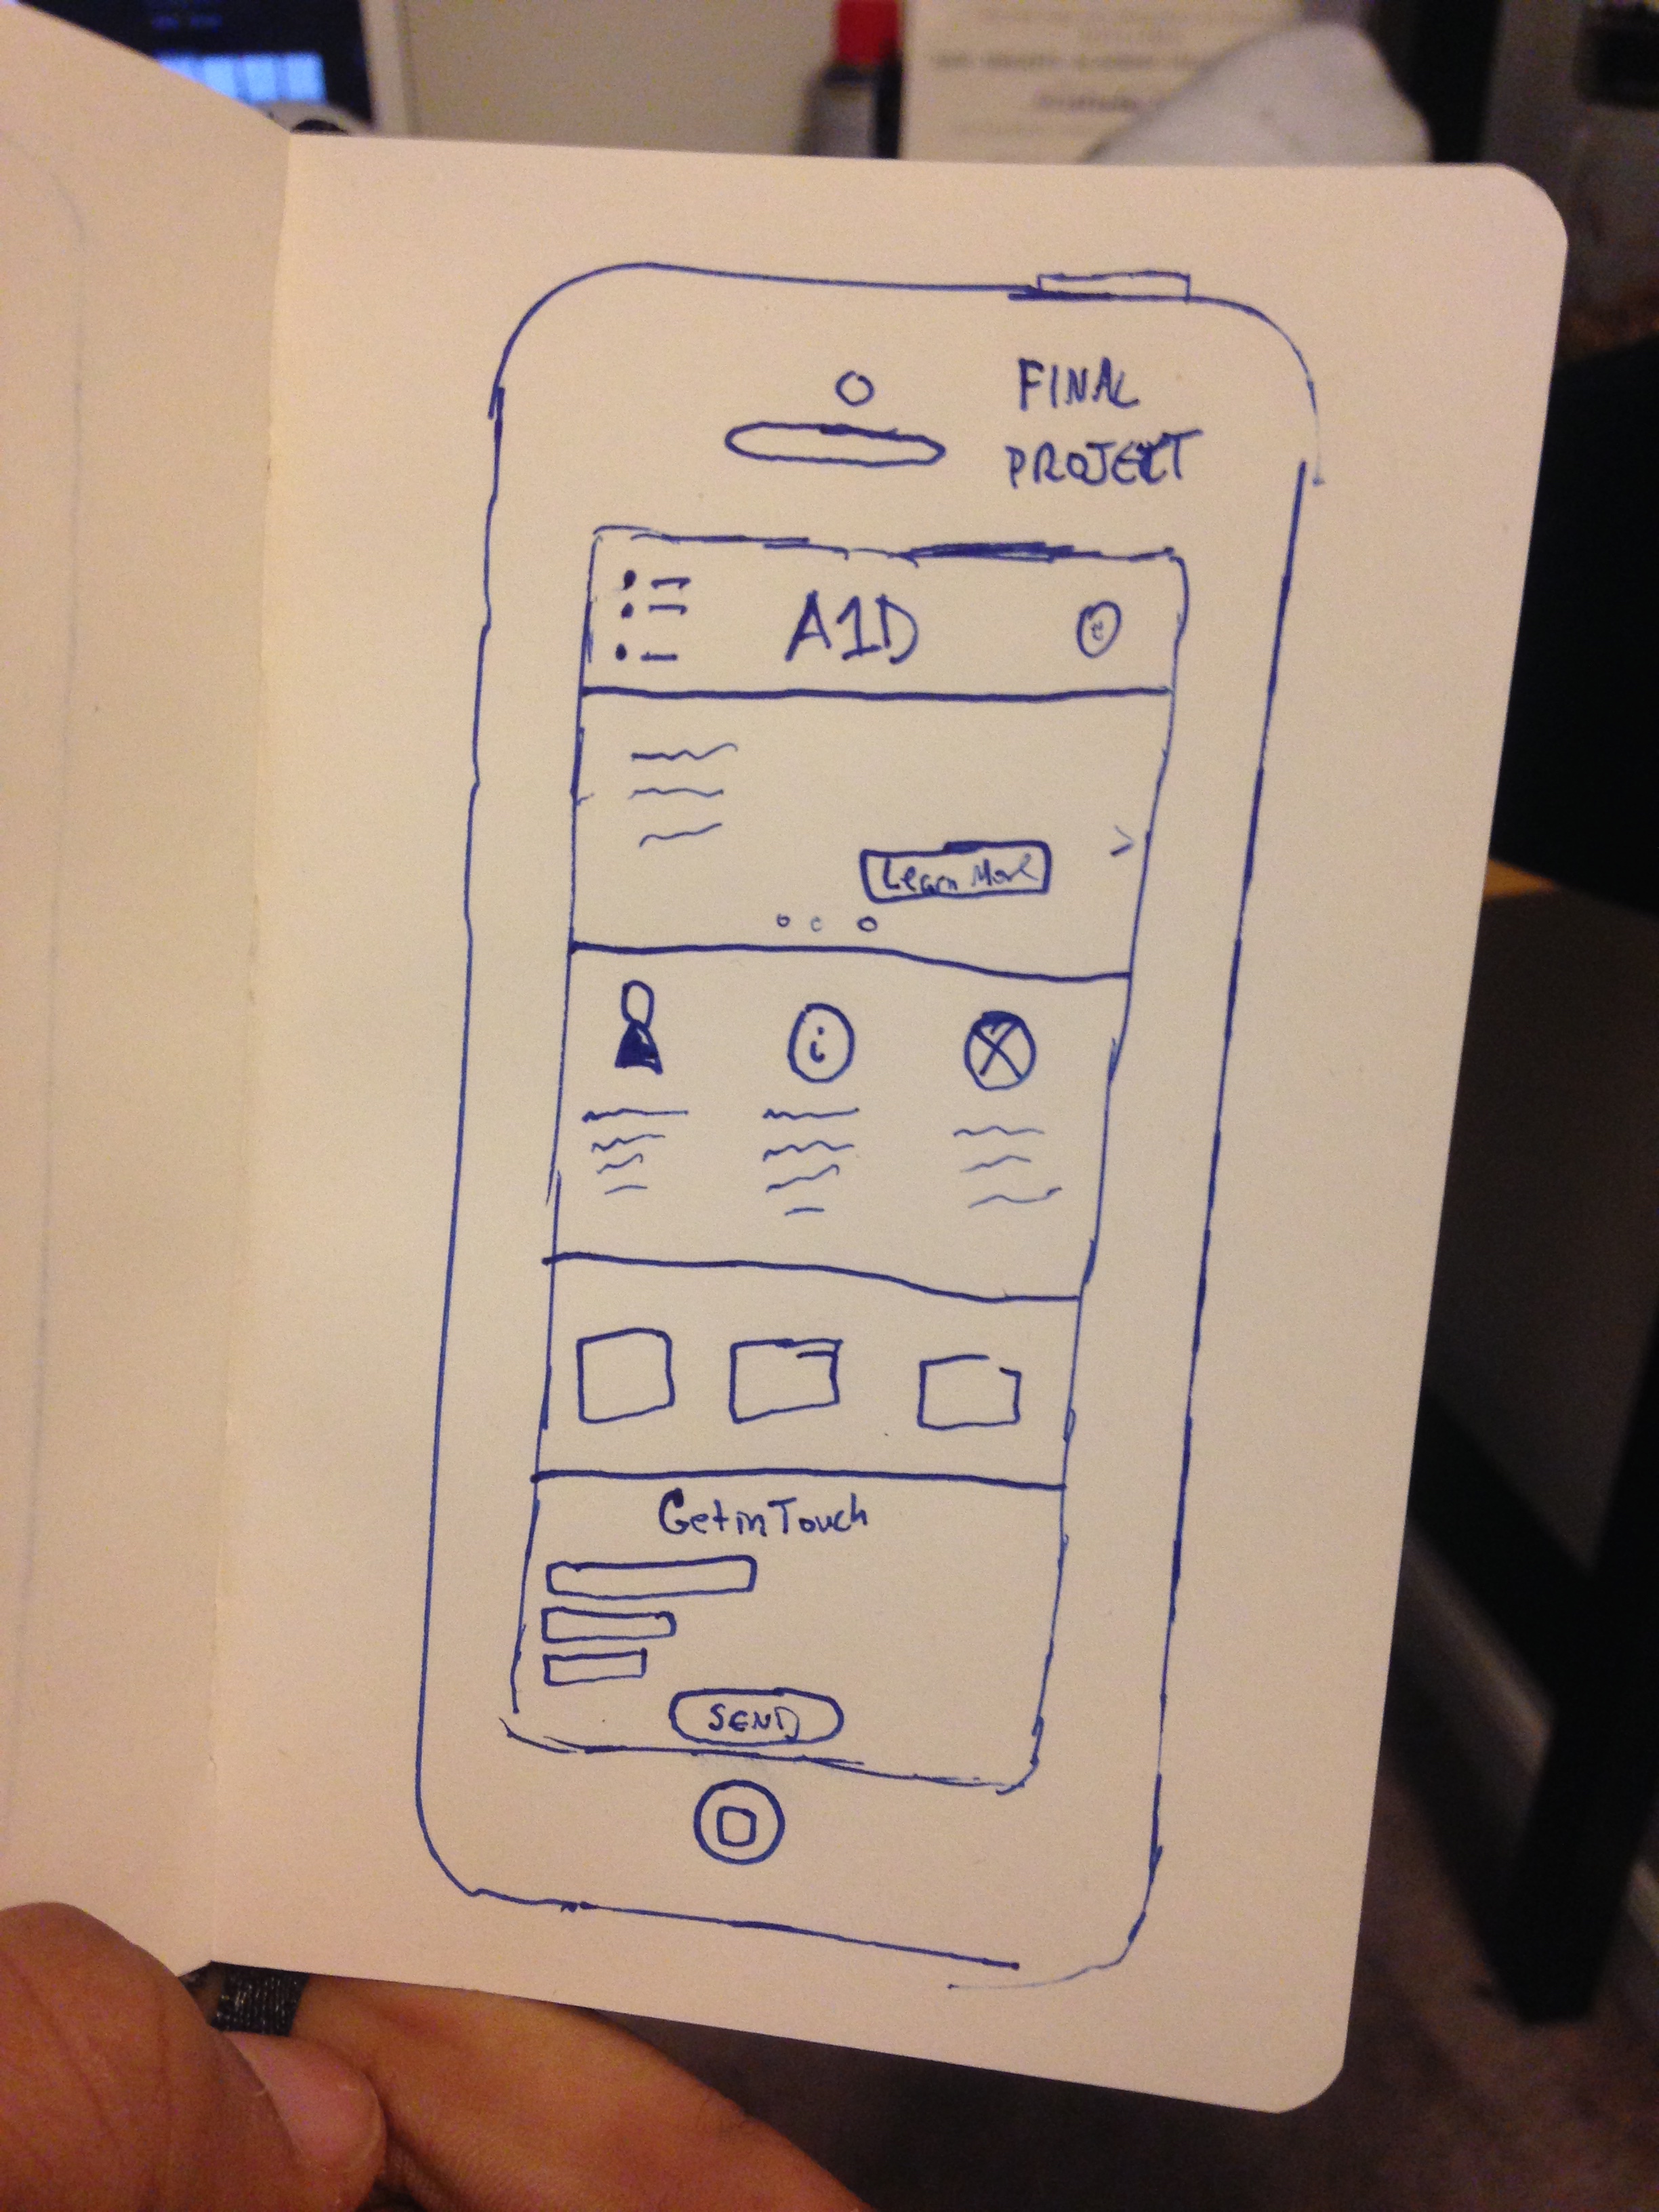 FINAL
PROJECT
A1D
Learn More
i
Get in Touch
SEND